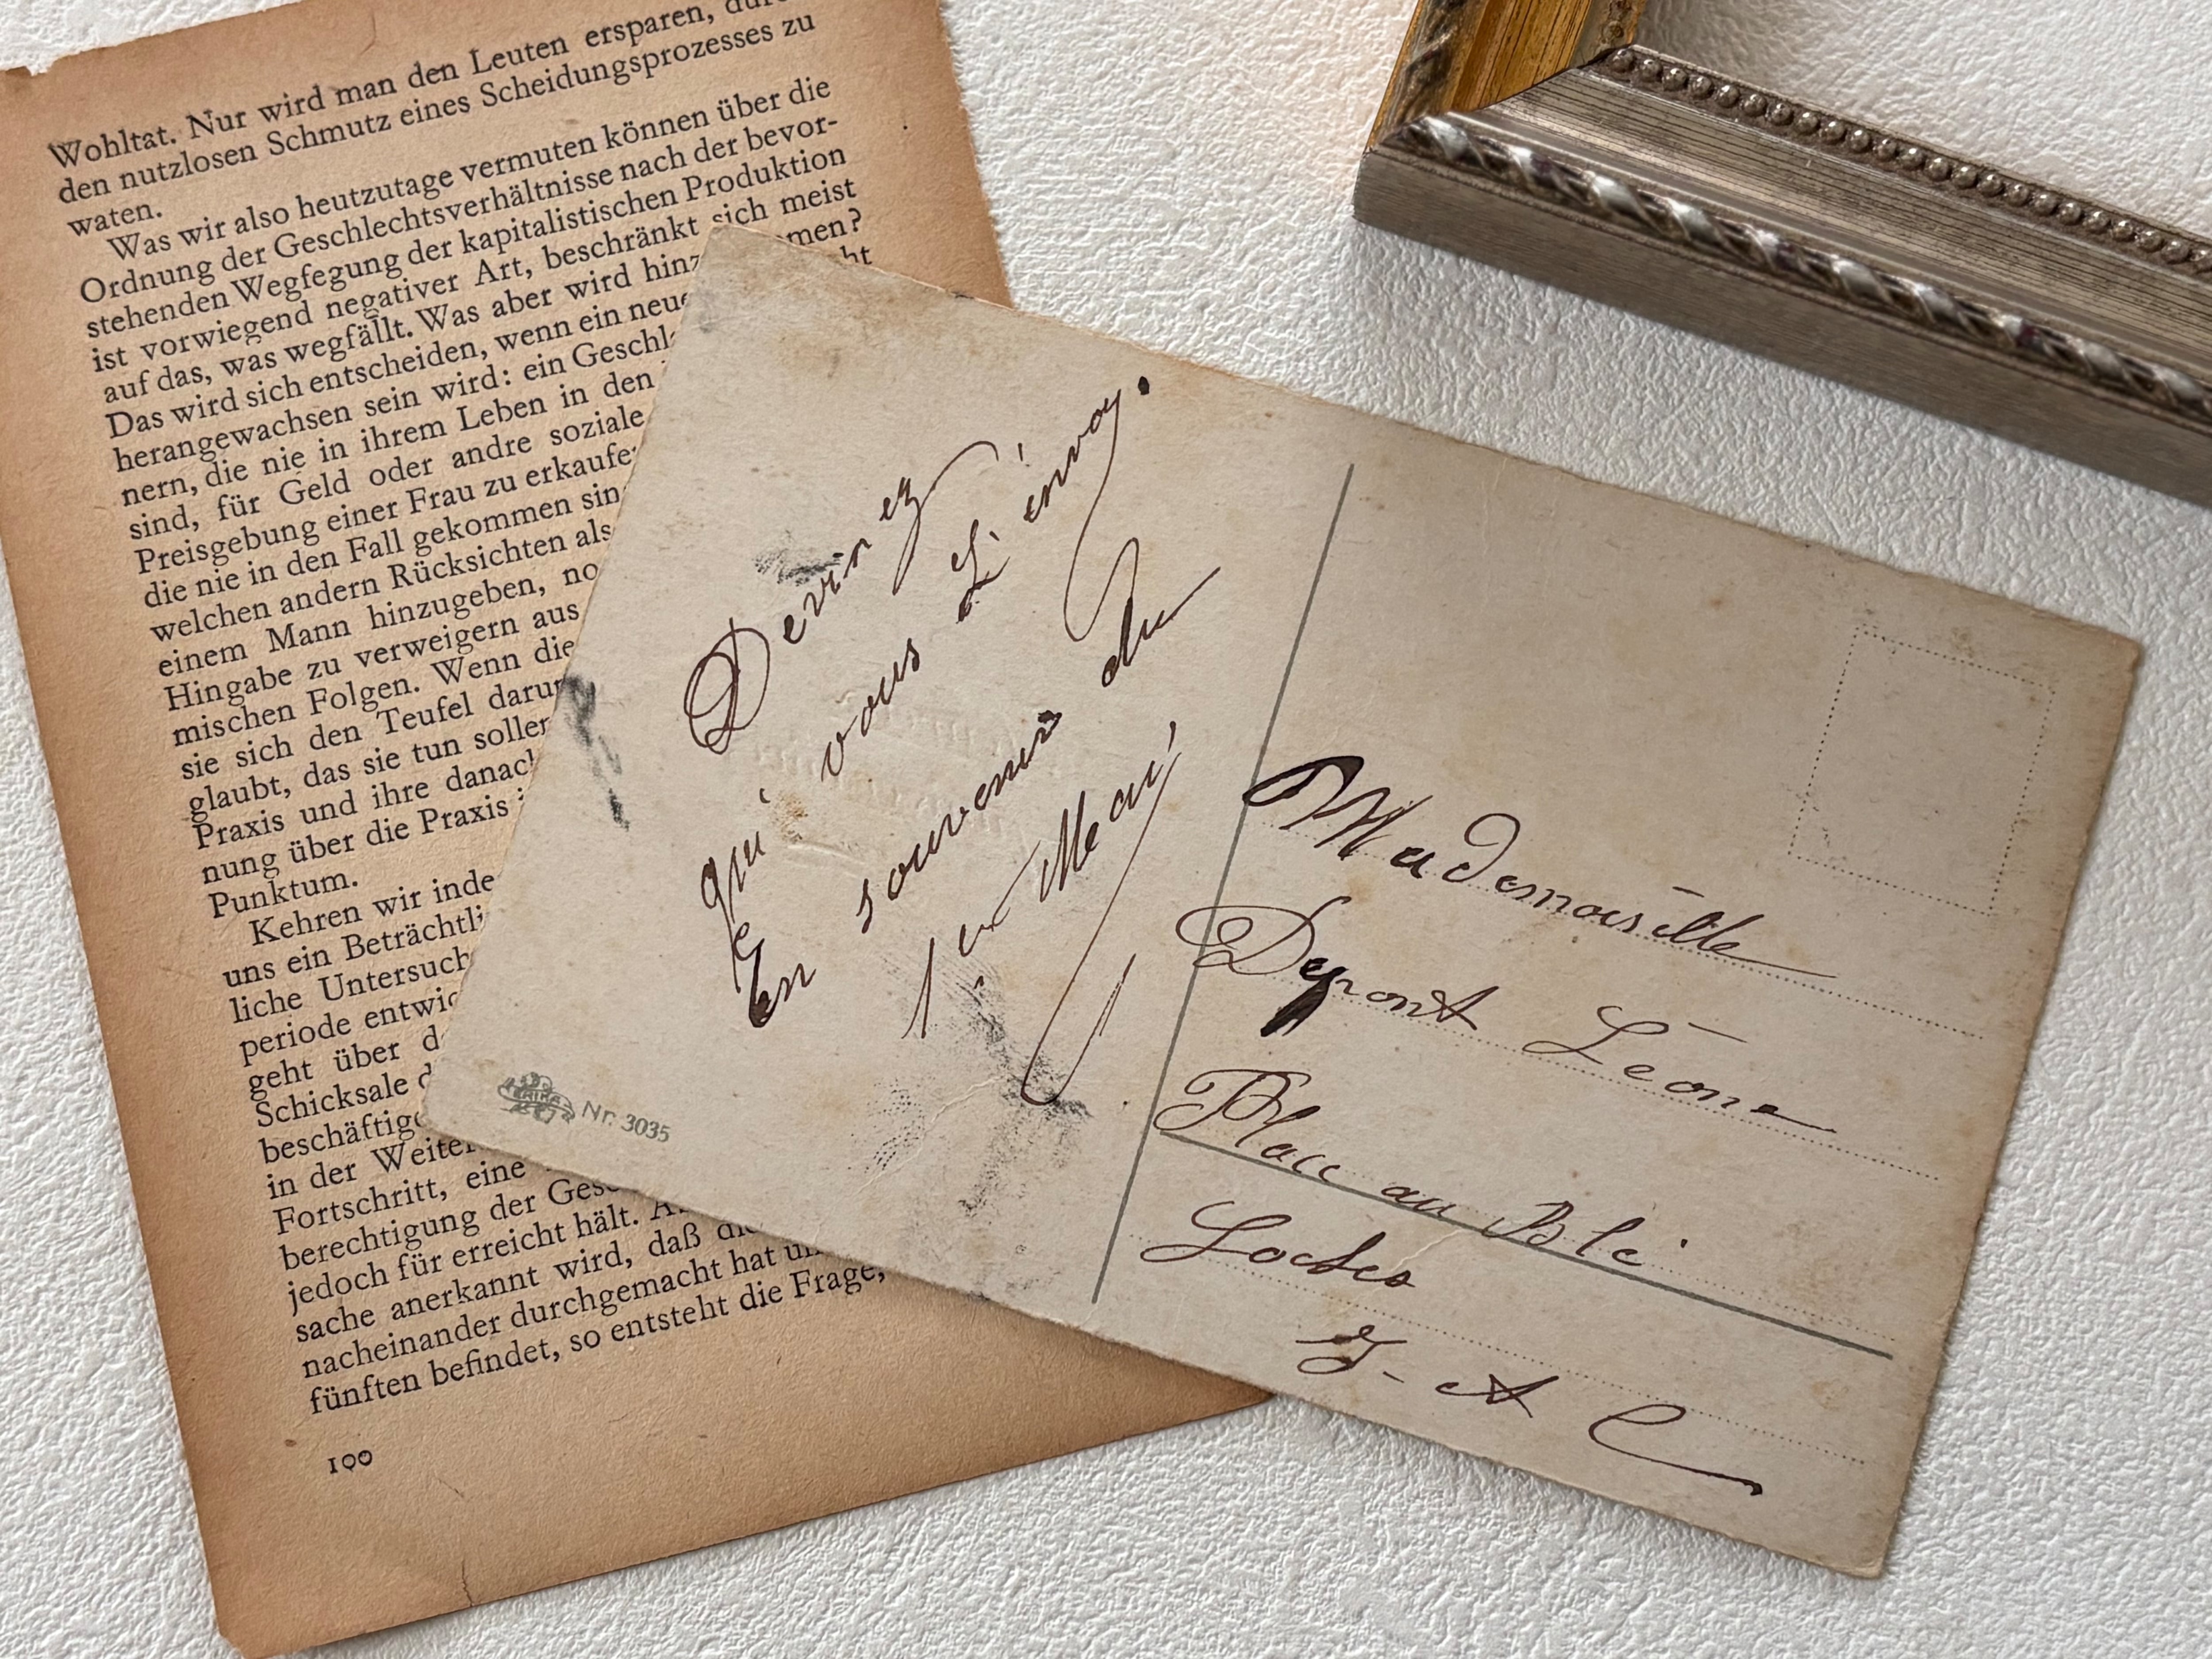 Wohltat. Nur wird man den Leuten ersparen,
den nutzlosen Schmutz eines Scheidungsprozesses zu
waten.
Was wir also heutzutage vermuten können über die
Ordnung der Geschlechtsverhältnisse nach der bevor-
stehenden Wegfegung der kapitalistischen Produktion
ist vorwiegend negativer Art, beschränkt sich meist
auf das, was wegfällt. Was aber wird hinz men?
Das wird sich entscheiden, wenn ein neue ht
herangewachsen sein wird: ein Geschl
nern, die nie in ihrem Leben in den
sind, für Geld oder andre soziale
Preisgebung einer Frau zu erkaufe
die nie in den Fall gekommen sin
welchen andern Rücksichten als
einem Mann hinzugeben, no
Hingabe zu verweigern aus
mischen Folgen. Wenn die
sie sich den Teufel darum
glaubt, das sie tun soller
Praxis und ihre danach
nung über die Praxis
Punktum.
Kehren wir inde
uns ein Beträchtli
liche Untersuch
periode entwic
geht über d
Schicksale d
beschäftige
in der Weiter
Fortschritt, eine
berechtigung der Ges
jedoch für erreicht hält. A
sache anerkannt wird, daß die
nacheinander durchgemacht hat u
fünften befindet, so entsteht die Frage,
190
Devinez
qui vous L'envoy.
En souvenir du
1er Mai
ERIKA Nr. 3035
Mademoiselle
Depont Léone
Place au Blé
Loches
I-et L